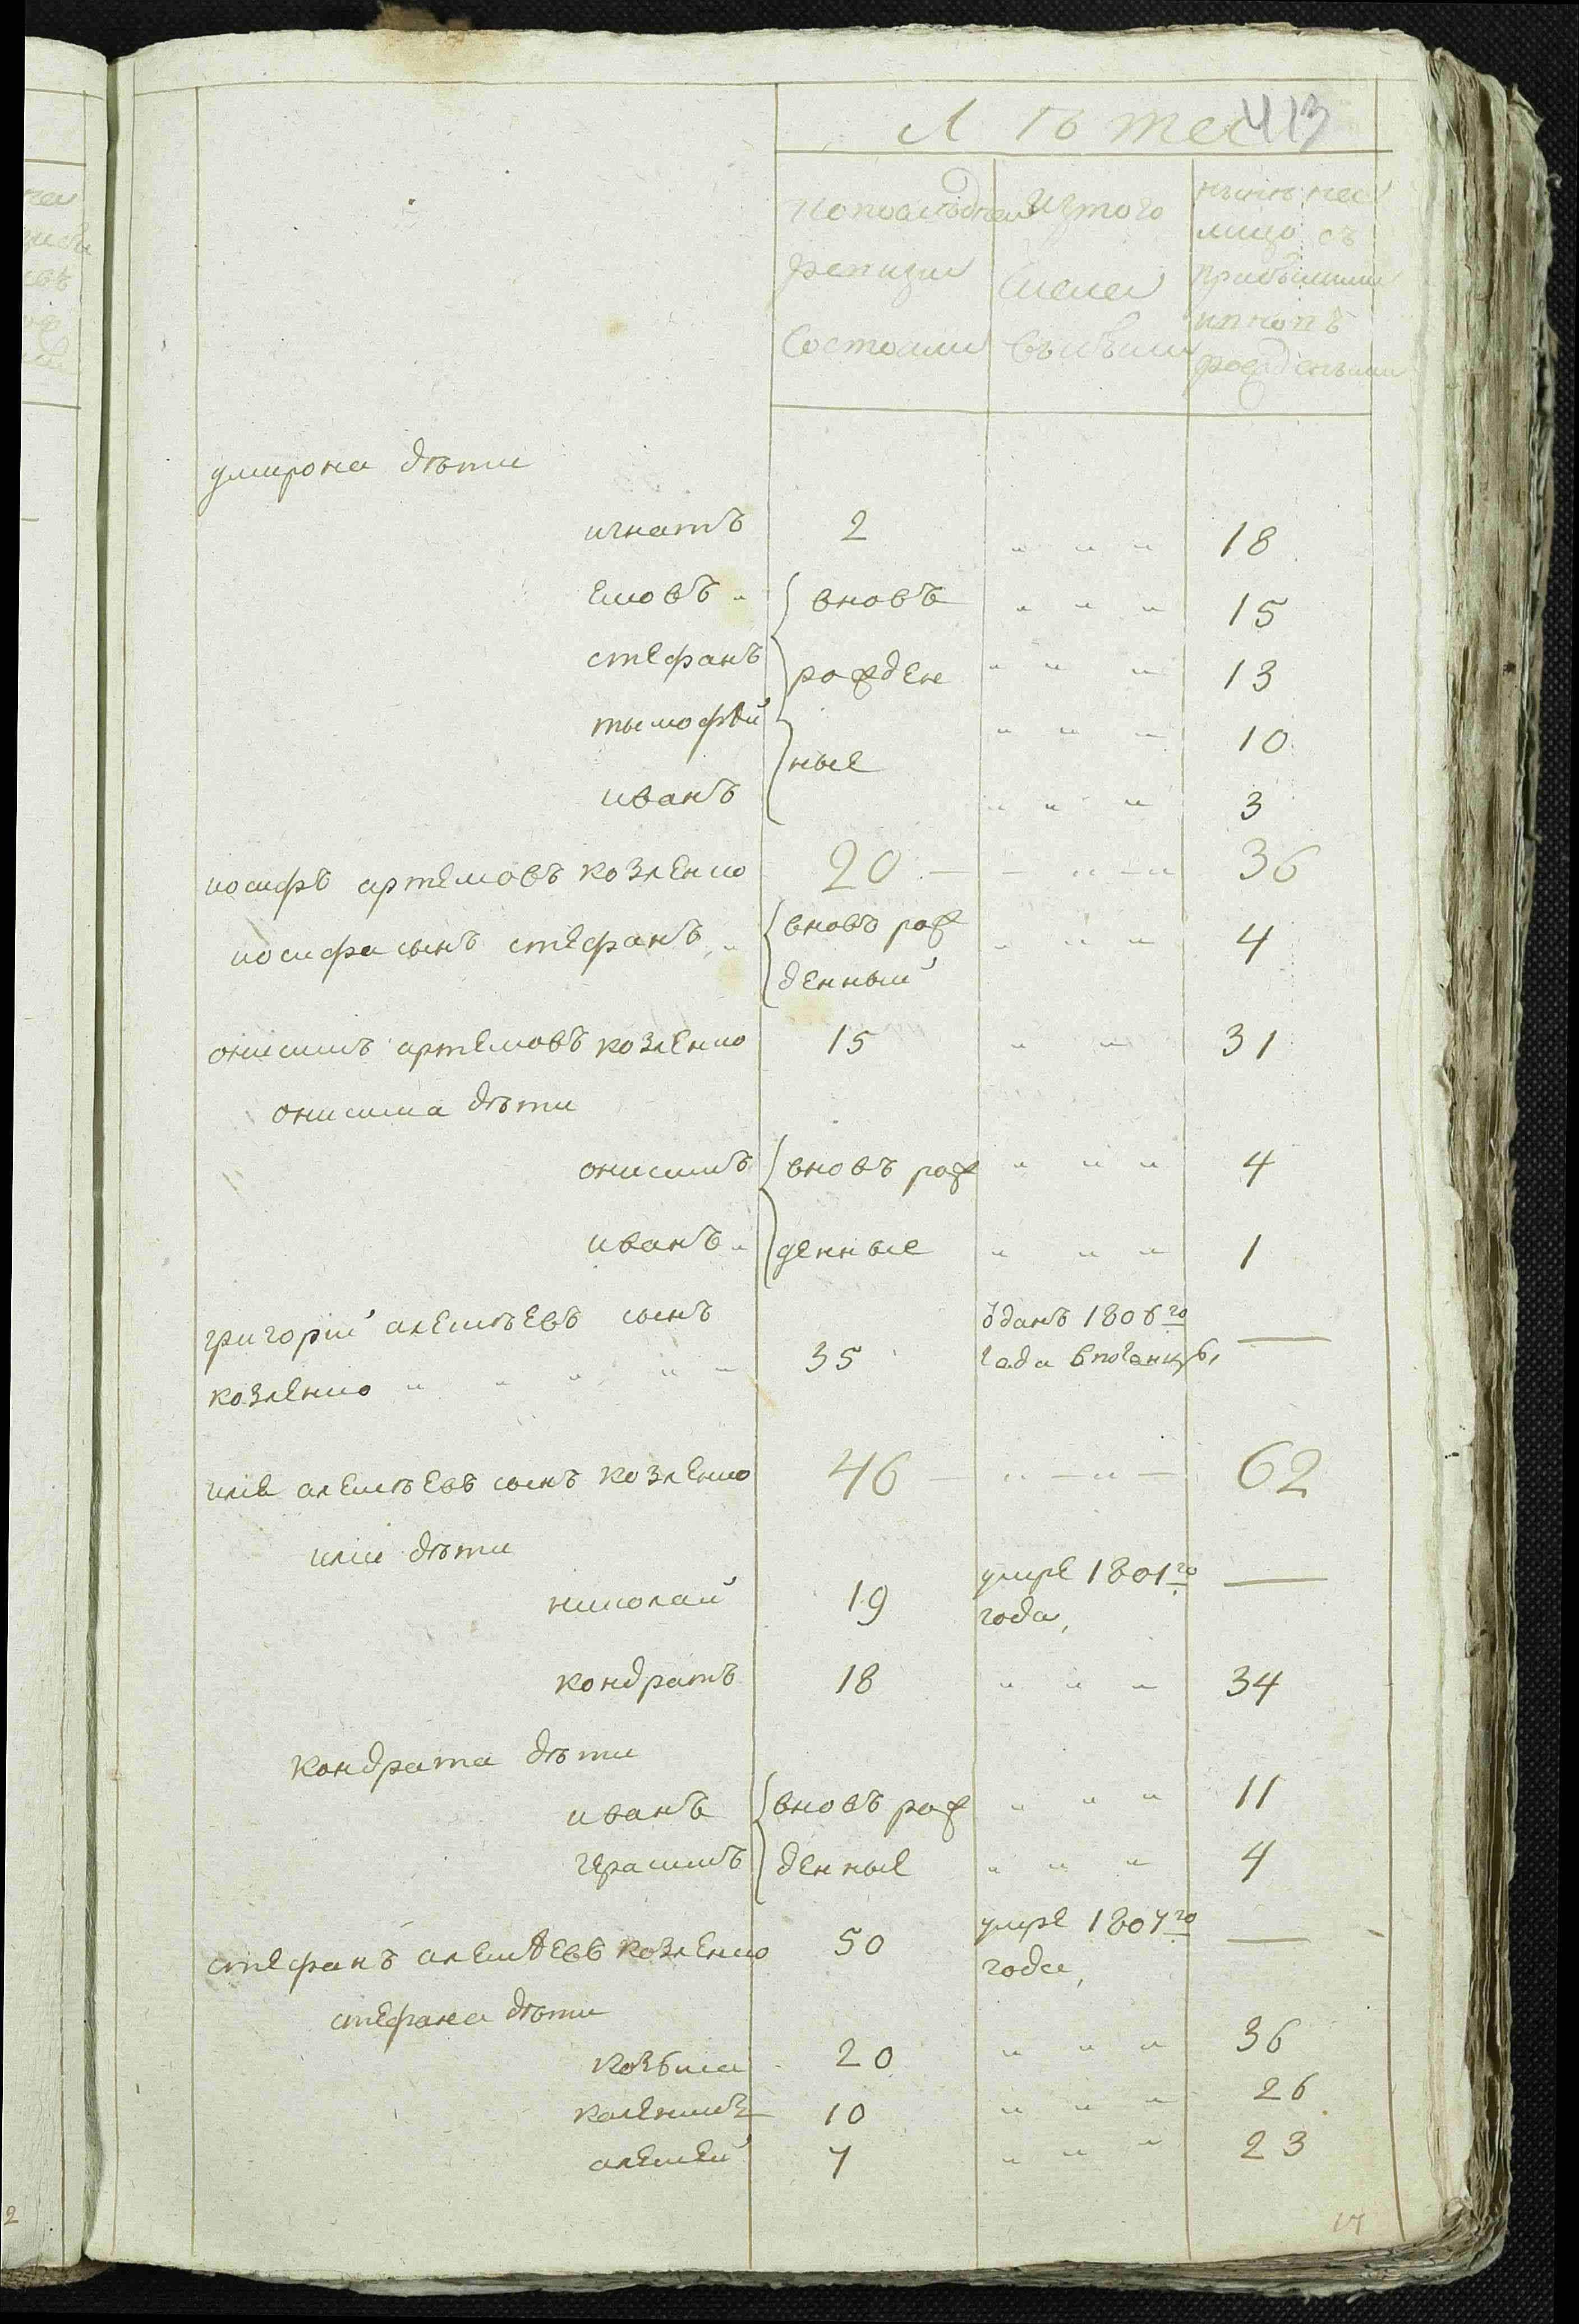 413
Лѣтеи
попоследней ревизии состояли
изтого числа выбыли
нынѣ налицо съ прибылыми ивновъ рожденными
умирона дѣти
игнатъ 2 " " " 18
яковъ " вновъ " " " 15
стефанъ рожден " " " 13
тымофѣй " " " 10
ные
иванъ " " " 3
иосифъ артемовъ козленко 20 — — " — " 36
иосифа сынъ стефанъ " вновъ рож " " " 4
денный
онисимъ артемовъ козленко 15 " " 31
онисима дѣти
онисимъ вновъ рож " " " 4
иванъ " денные " " " 1
григорий алексѣевъ сынъ 35 1806го —
козленко " " " " " года
илія алексѣевъ сынъ козленко 46 — " — " — 62
иліи дѣти
николай 19 умре 1801го —
года,
кондратъ 18 " " " 34
кондрата дѣти
иванъ вновъ рож " " " 11
герасимъ денные " " " 4
стефанъ алексѣевъ козленко 50 умре 1807го —
года,
стефана дѣти
козьма 20 " " " 36
каленикъ 10 " " " 26
алексей 7 " " " 23
17
2